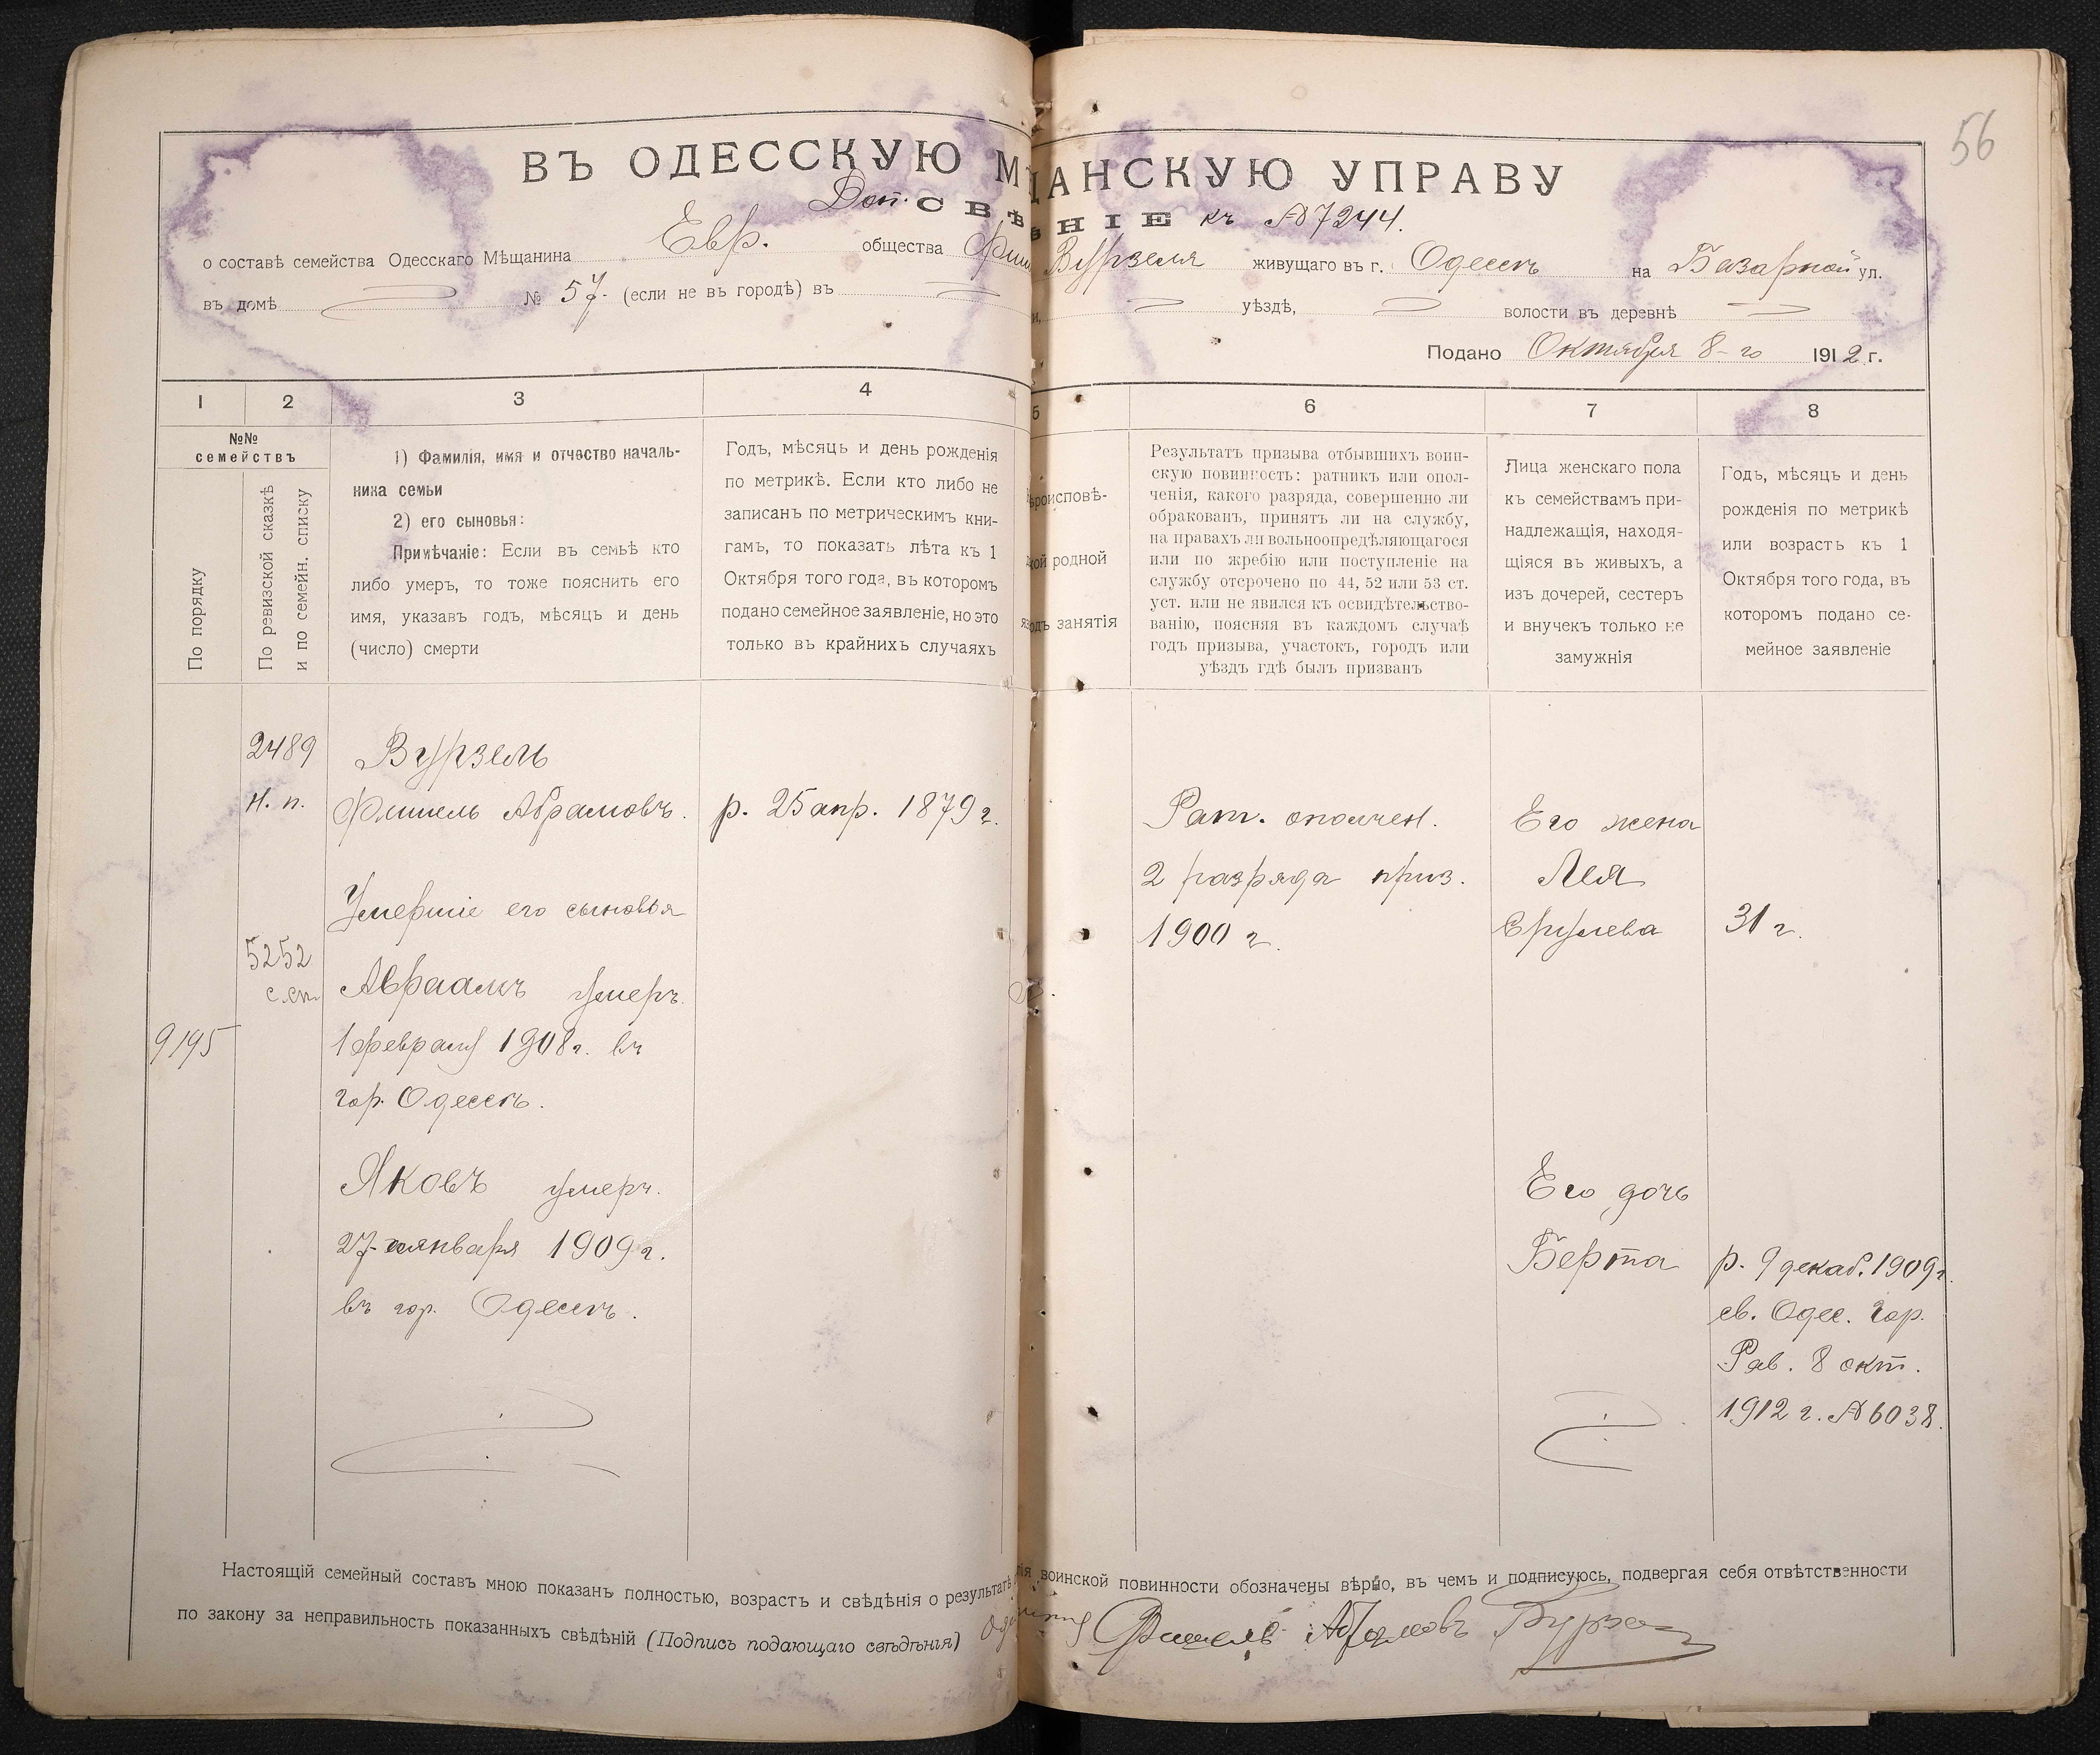 56
ВЪ ОДЕССКУЮ М ЩАНСКУЮ УПРАВУ
Доп. СВѢ ѢНІЕ къ №7244.
о составѣ семейства Одесскаго Мѣщанина Евр. общества Фиш Вурзеля живущаго въ г. Одессѣ на Базарной ул.
въ домѣ № 57 (если не въ городѣ) въ и, уѣздѣ, волости въ деревнѣ
Подано Октября 8-го 1912 г.
1 2 3 4 5 6 7 8
№№ семействъ
По порядку
По ревизской сказкѣ
и по семейн. списку
1) Фамилія, имя и отчество началь-
ника семьи
2) его сыновья:
Примѣчаніе: Если въ семьѣ кто
либо умеръ, то тоже пояснить его
имя, указавъ годъ, мѣсяцъ и день
(число) смерти
Годъ, мѣсяцъ и день рожденія
по метрикѣ. Если кто либо не
записанъ по метрическимъ кни-
гамъ, то показать лѣта къ 1
Октября того года, въ которомъ
подано семейное заявленіе, но это
только въ крайнихъ случаяхъ
ѣроисповѣ-
кой родной
одъ занятія
Результатъ призыва отбывшихъ воин-
скую повинность: ратникъ или опол-
ченія, какого разряда, совершенно ли
обракованъ, принятъ ли на службу,
на правахъ ли вольноопредѣляющагося
или по жребію или поступленіе на
службу отсрочено по 44, 52 или 53 ст.
уст. или не явился къ освидѣтельство-
ванію, поясняя въ каждомъ случаѣ
годъ призыва, участокъ, городъ или
уѣздъ гдѣ былъ призванъ
Лица женскаго пола
къ семействамъ при-
надлежащія, находя-
щіяся въ живыхъ, а
изъ дочерей, сестеръ
и внучекъ только не
замужнія
Годъ, мѣсяцъ и день
рожденія по метрикѣ
или возрастъ къ 1
Октября того года, въ
которомъ подано се-
мейное заявленіе
2489
н. п.
5252
с. сп.
9195
Вурзель
Фишель Абрамовъ.
Умершіе его сыновья
Авраамъ умеръ.
1 февраля 1908 г. въ
гор. Одессѣ.
Яковъ умеръ.
27-го января 1909 г.
въ гор. Одессѣ.
р. 25 апр. 1879 г.
Рат. ополчен.
2 разряда приз.
1900 г.
Его жена
Лея
Срулева
31 г.
Его дочь
Берта
р. 9 декаб. 1909 г.
св. Одес. Гор.
Рав. 8 окт.
1912 г. №6038.
Настоящій семейный составъ мною показанъ полностью, возрастъ и свѣдѣнія о результатѣ ія воинской повинности обозначены вѣрно, въ чемъ и подписуюсь, подвергая себя отвѣтственности
по закону за неправильность показанныхъ свѣдѣній (Подпись подающаго свѣдѣнія) Фишель Абрамовъ Вурзель